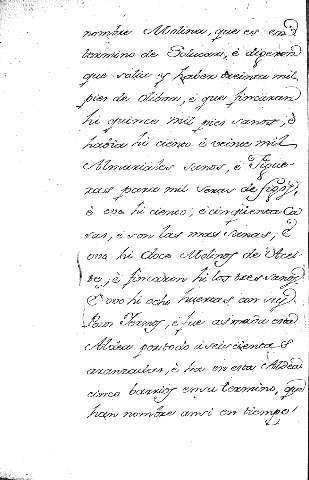 nombre Molina, que es en
termino de Solucar, è digeron
que solia y haber treinta mil
pies de Olibar, è que fincaran
hi quince mil pies sanos, è
habia hi ciento è veinte mil
Almarjales sanos, è Figue-
ras para mil seras de figos,
è ovo hi ciento, è cinquenta Ca-
sas, è son las mas sanas, è
ovo hi doce Molinos de Acei-
te, è fincaron hi los tres sanos.
E ovo hi ocho huertas con su
è fue asmada esta
Aldea por todo à seiscientas
aranzadas, è ha en esta Aldea
cinco barrios en su termino, que
han nombre ansi en tiempo